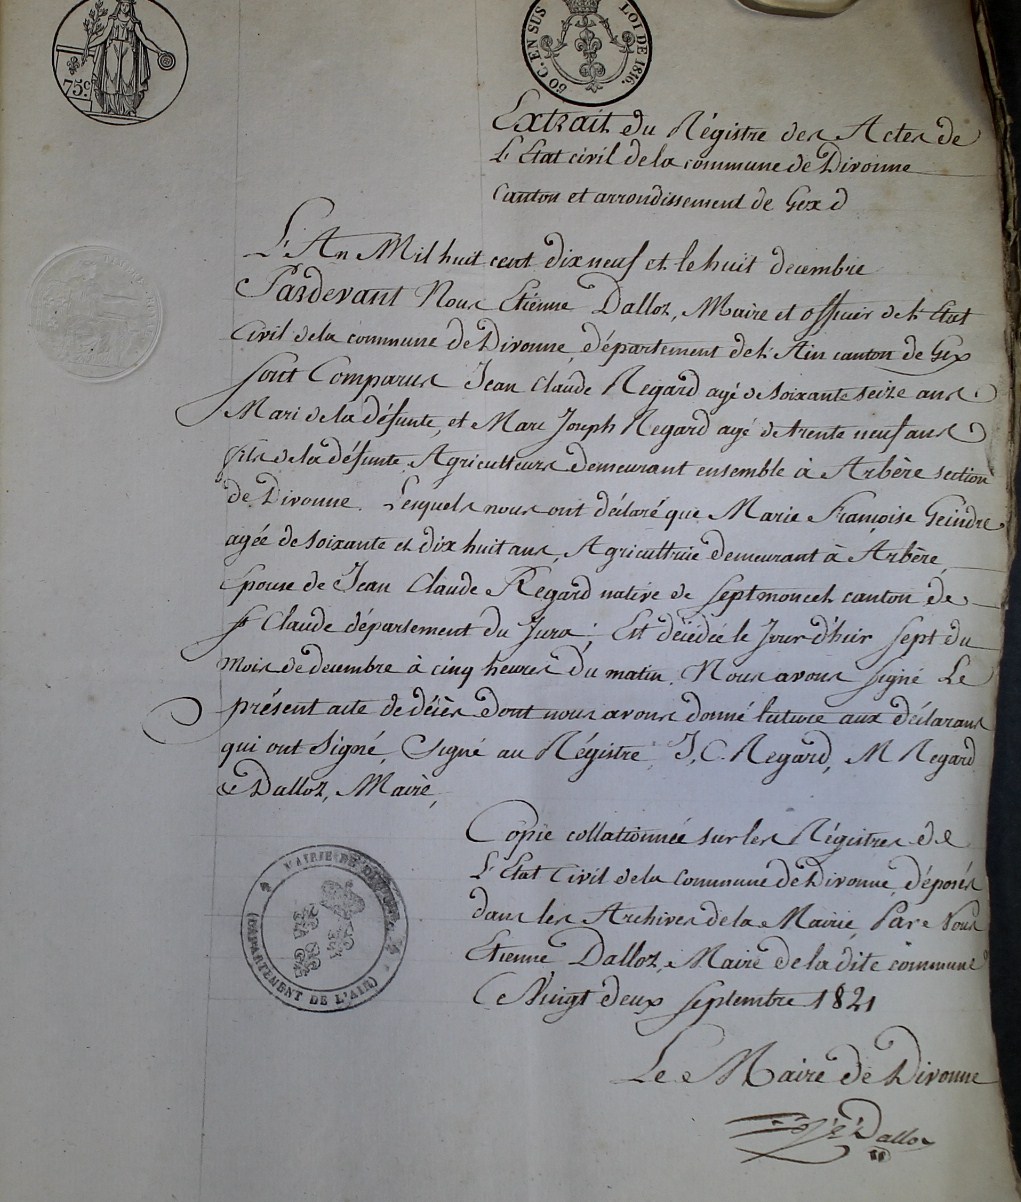 75 c.
50 C. EN SUS
LOI DE 1816.
Extrait du Régistre des Actes de
L'Etat civil de la commune de Divonne
Canton et arrondissement de Gex
L'An Mil huit cent dix neuf et le huit decembre
Pardevant Nous Etienne Dalloz, Maire et officier de l'Etat
Civil de la commune de Divonne, département de l'Ain canton de Gex
sont Comparus Jean Claude Regard agé de soixante seize ans
Mari de la défunte, et Marc Joseph Regard agé de trente neuf ans
fils de la défunte Agriculteurs demeurant ensemble à Arbère section
de Divonne. Lesquels nous ont déclaré que Marie Françoise Geindre
agée de soixante et dix huit ans, Agricultrice demeurant à Arbère,
Epouse de Jean Claude Regard native de Septmoncel canton de
St Claude département du Jura; Est décédée le Jour d'hier sept du
mois de decembre à cinq heures du matin. Nous avons signé Le
présent acte de décès dont nous avons donné lecture aux déclarans
qui ont signé, Signé au Régistre, J, C. Regard, M Regard
& Dalloz, Maire,
Copie collationnée sur les Régistres de
L'Etat Civil de la Commune de Divonne, déposés
dans les Archives de la Mairie, Par Nous
Etienne Dalloz, Maire de la dite commune
Ce Vingt deux Septembre 1821
Le Maire de Divonne
Dalloz
MAIRIE DE DIVONNE
(DÉPARTEMENT DE L'AIN)